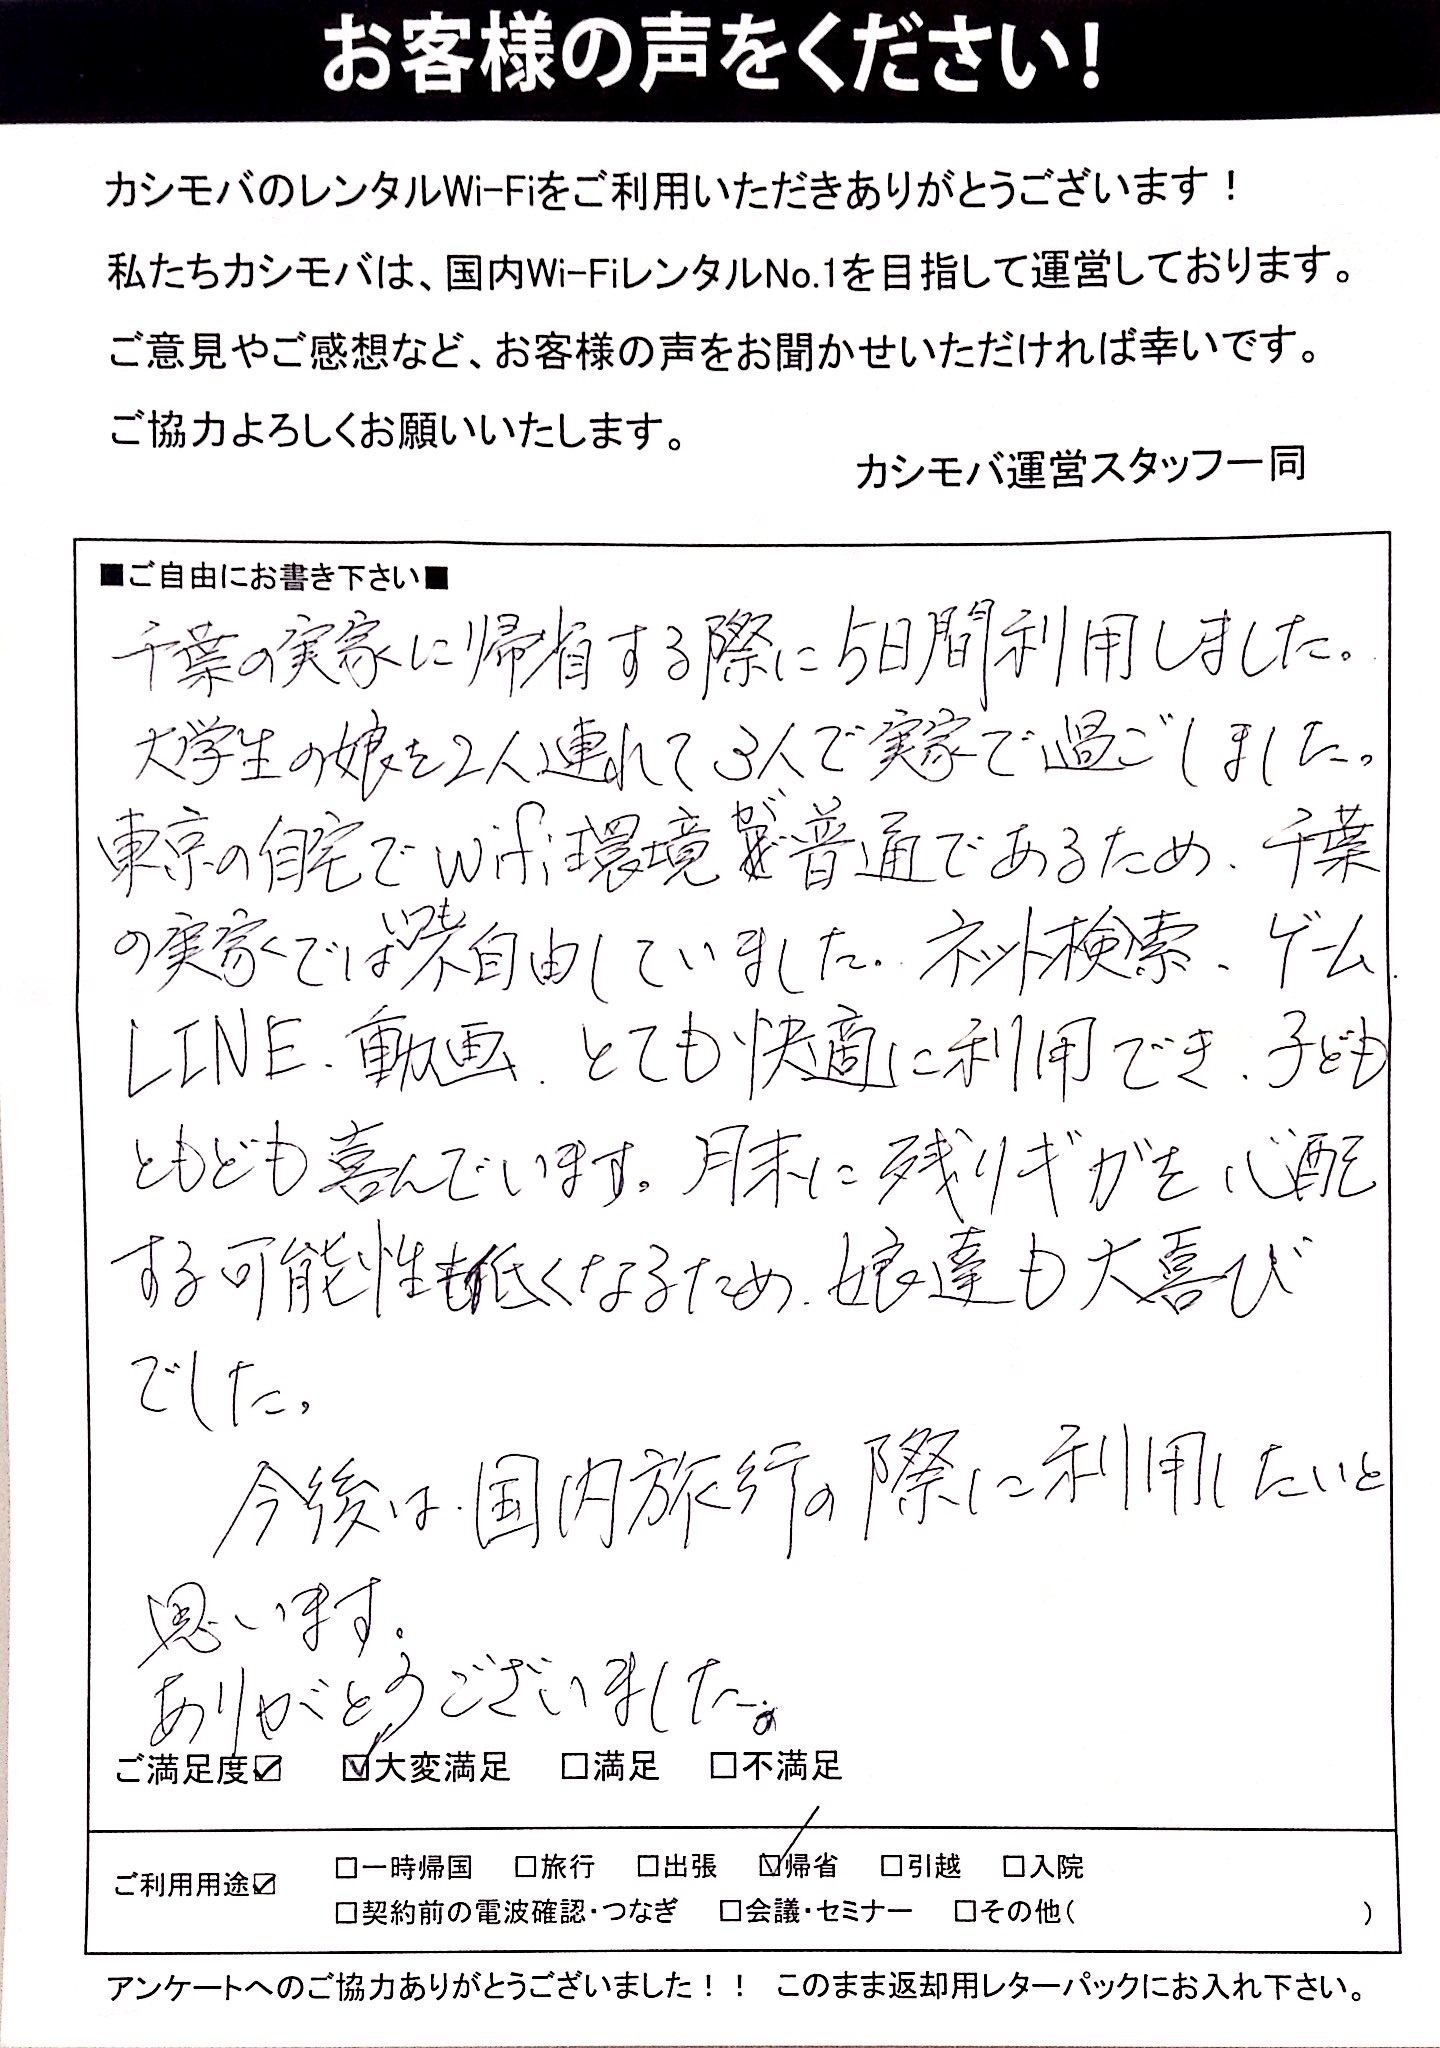 お客様の声をください!
カシモバのレンタルWi-Fiをご利用いただきありがとうございます！
私たちカシモバは、国内Wi-FiレンタルNo.1を目指して運営しております。
ご意見やご感想など、お客様の声をお聞かせいただければ幸いです。
ご協力よろしくお願いいたします。
カシモバ運営スタッフ一同
■ご自由にお書き下さい■
千葉の実家に帰省する際に5日間利用しました。
大学生の娘を2人連れて3人で実家で過ごしました。
東京の自宅でwifi環境が普通であるため、千葉
の実家ではいつも不自由していました。ネット検索、ゲーム、
LINE、動画、とても快適に利用でき、子ども
ともども喜んでいます。月末に残りギガを心配
する可能性も低くなるため、娘達も大喜び
でした。
今後は、国内旅行の際に利用したいと
思います。
ありがとうございました。
ご満足度☑ ☑大変満足 □満足 □不満足
ご利用用途☑ □一時帰国 □旅行 □出張 ☑帰省 □引越 □入院
□契約前の電波確認・つなぎ □会議・セミナー □その他( )
アンケートへのご協力ありがとうございました！！ このまま返却用レターパックにお入れ下さい。